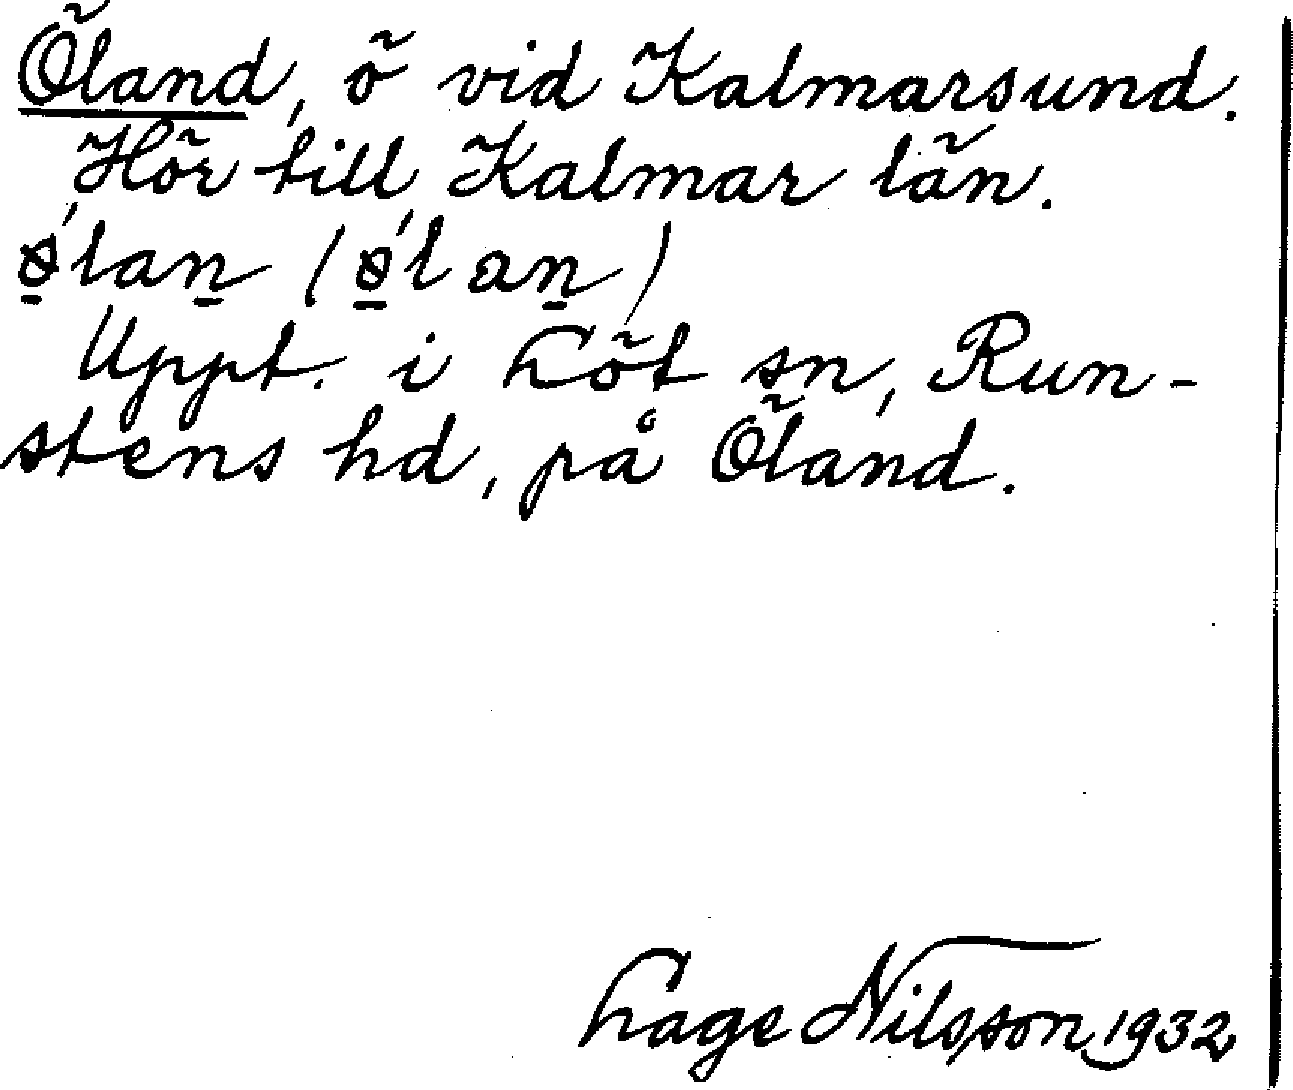 Öland, ö vid Kalmarsund.
Hör till Kalmar län.
ǿ̱laṉ (ǿ̱laṉ)
Uppt. i Löt sn, Run-
stens hd, på Öland.
Lage Nilsson 1932